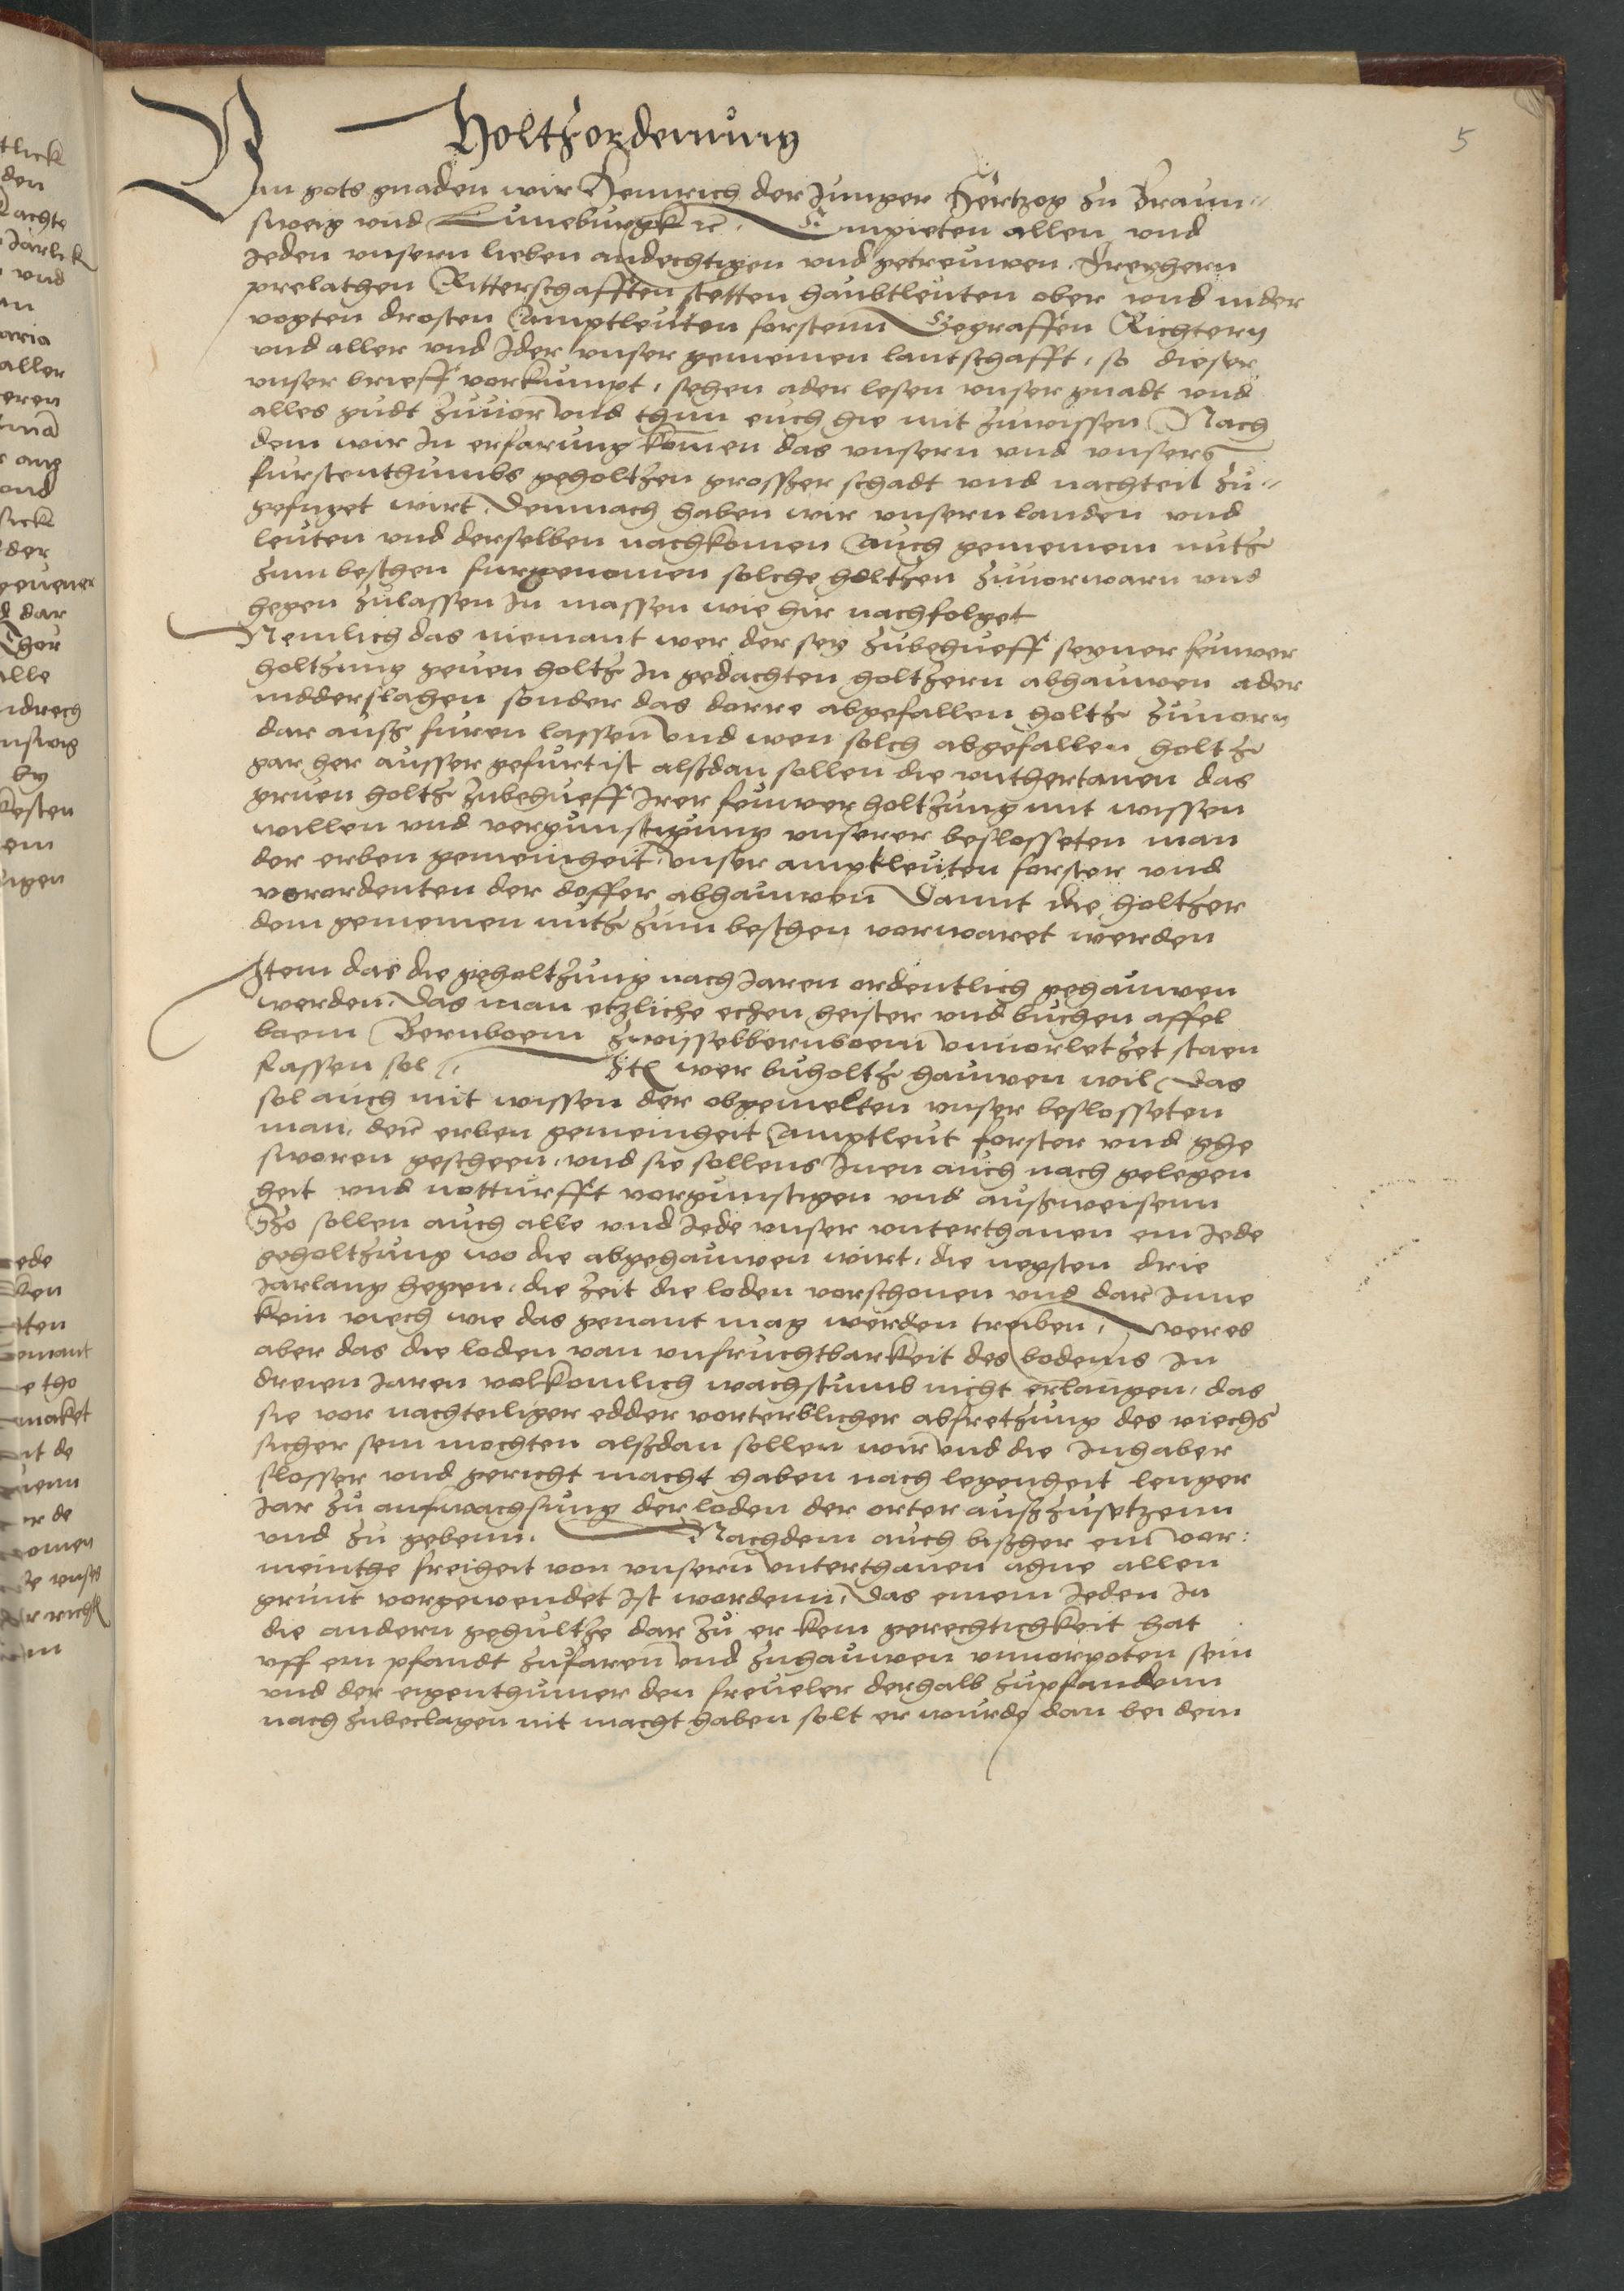 5
Holtzordenung
Von gots gnaden wir Heinrich der Junger Hertzog zu Braun-
sweig vnd Luneburgk ꝛc. Empieten allen vnd
Jeden vnsern lieben andechtigen vnd getreuwen. Freyhern
prelathen Ritterschafften stetten haubtleuten ober vnd nider
vogten drosten Amptleuten forstenn Gegraffen Richtern
vnd aller vnd Jder vnser gemeinen lantschafft, so dieser
vnser brieff vorkumpt, sehen ader lesen vnser gnadt vnd
alles gudt zuuorn vnd thun euch hie mit zuwissen Nach
dem wir In erfarung komen das vnsern vnd vnsers
furstenthumbs geholtzen grosser schadt vnd nachteil zu-
gefuget wirt, Demnach haben wir vnsern landen vnd
leuten vnd derselben nachkomen Auch gemeinem nutz
zum besthen furgenomen solche holtzen zuuorwarn vnd
hegen zulassen In massen wie hir nachfolget
Nemlich das niemant wer der sey zubehueff seyner feuwer
holtzung geuen holtz In gedachten holtzern abhauwen ader
nidderslagen sonder das dorre abgefallen holtz zuuorn
dar ausz furen lassenn vnd wen solch abgefallen holtz
gar her ausser gefurt ist alszdan sollen die vnthertanen das
gruen holtz zubehueff Irer feuwer holtzung mit wissen
willen vnd vergunstigung vnserer beslosseten man
der erben gemeinheit, vnser amptleuten forster vnd
verordenten der dorffer abhauwenn Damit die holtzer
dem gemeinen nutz zum besthen vorwaret werden
Item das die geholtzung nach Jaren ordentlich gehauwen
werden, Das man etzliche echen heister vnd buchen affel
boem Bernboem zwisselbernboem vnuorletzet staen
lassen sol, Itē wer buholtz hauwen wil, das
sol auch mit wissen der obgemelten vnser beslosseten
man, dern erben gemeinheit Amptleut forster vnd ghe
sworen gescheen, vnd sie sollens Inen auch nach gelegen
heit vnd notturfft vorgunstigen vnd auszweisenn
Szo sollen auch alle vnd Jede vnser vnterthanen ein Jede
geholtzung wo die abgehauwen wirt, die negsten drie
Jarlang hegen, die zeit die loden vorschonen vnd dar Inne
kein viech wie das genant mag werden treiben, Wer es
aber das die loden van vnfruchtbarkeit des bodems In
dreien Jaren volkomlich wachstumb nicht erlangen, das
sie vor nachteiliger edder vorterblicher abfretzung des viechs
sicher sein mochten alszdan sollen wir vnd die Inhaber
slosser vnd gericht macht haben nach legenheit lenger
Jar zu aufwachsung der loden der orter ausz zusetzenn
vnd zu gebenn. Nachdem auch biszher ein vor:
meinthe freiheit von vnsern vnterthanen ahne allen
grunt vorgewendet Ist wordenn, Das einem Jeden In
die andern gehultze dar zu er kein gerechtichkeit hat
vff ein pfandt zufarenn vnd zuhauwen vnuorpoten sein
vnd der eigenthumer den freueler derhalb zupfandenn
nach zubeclagen nit macht haben solt er wurde dan bei dem